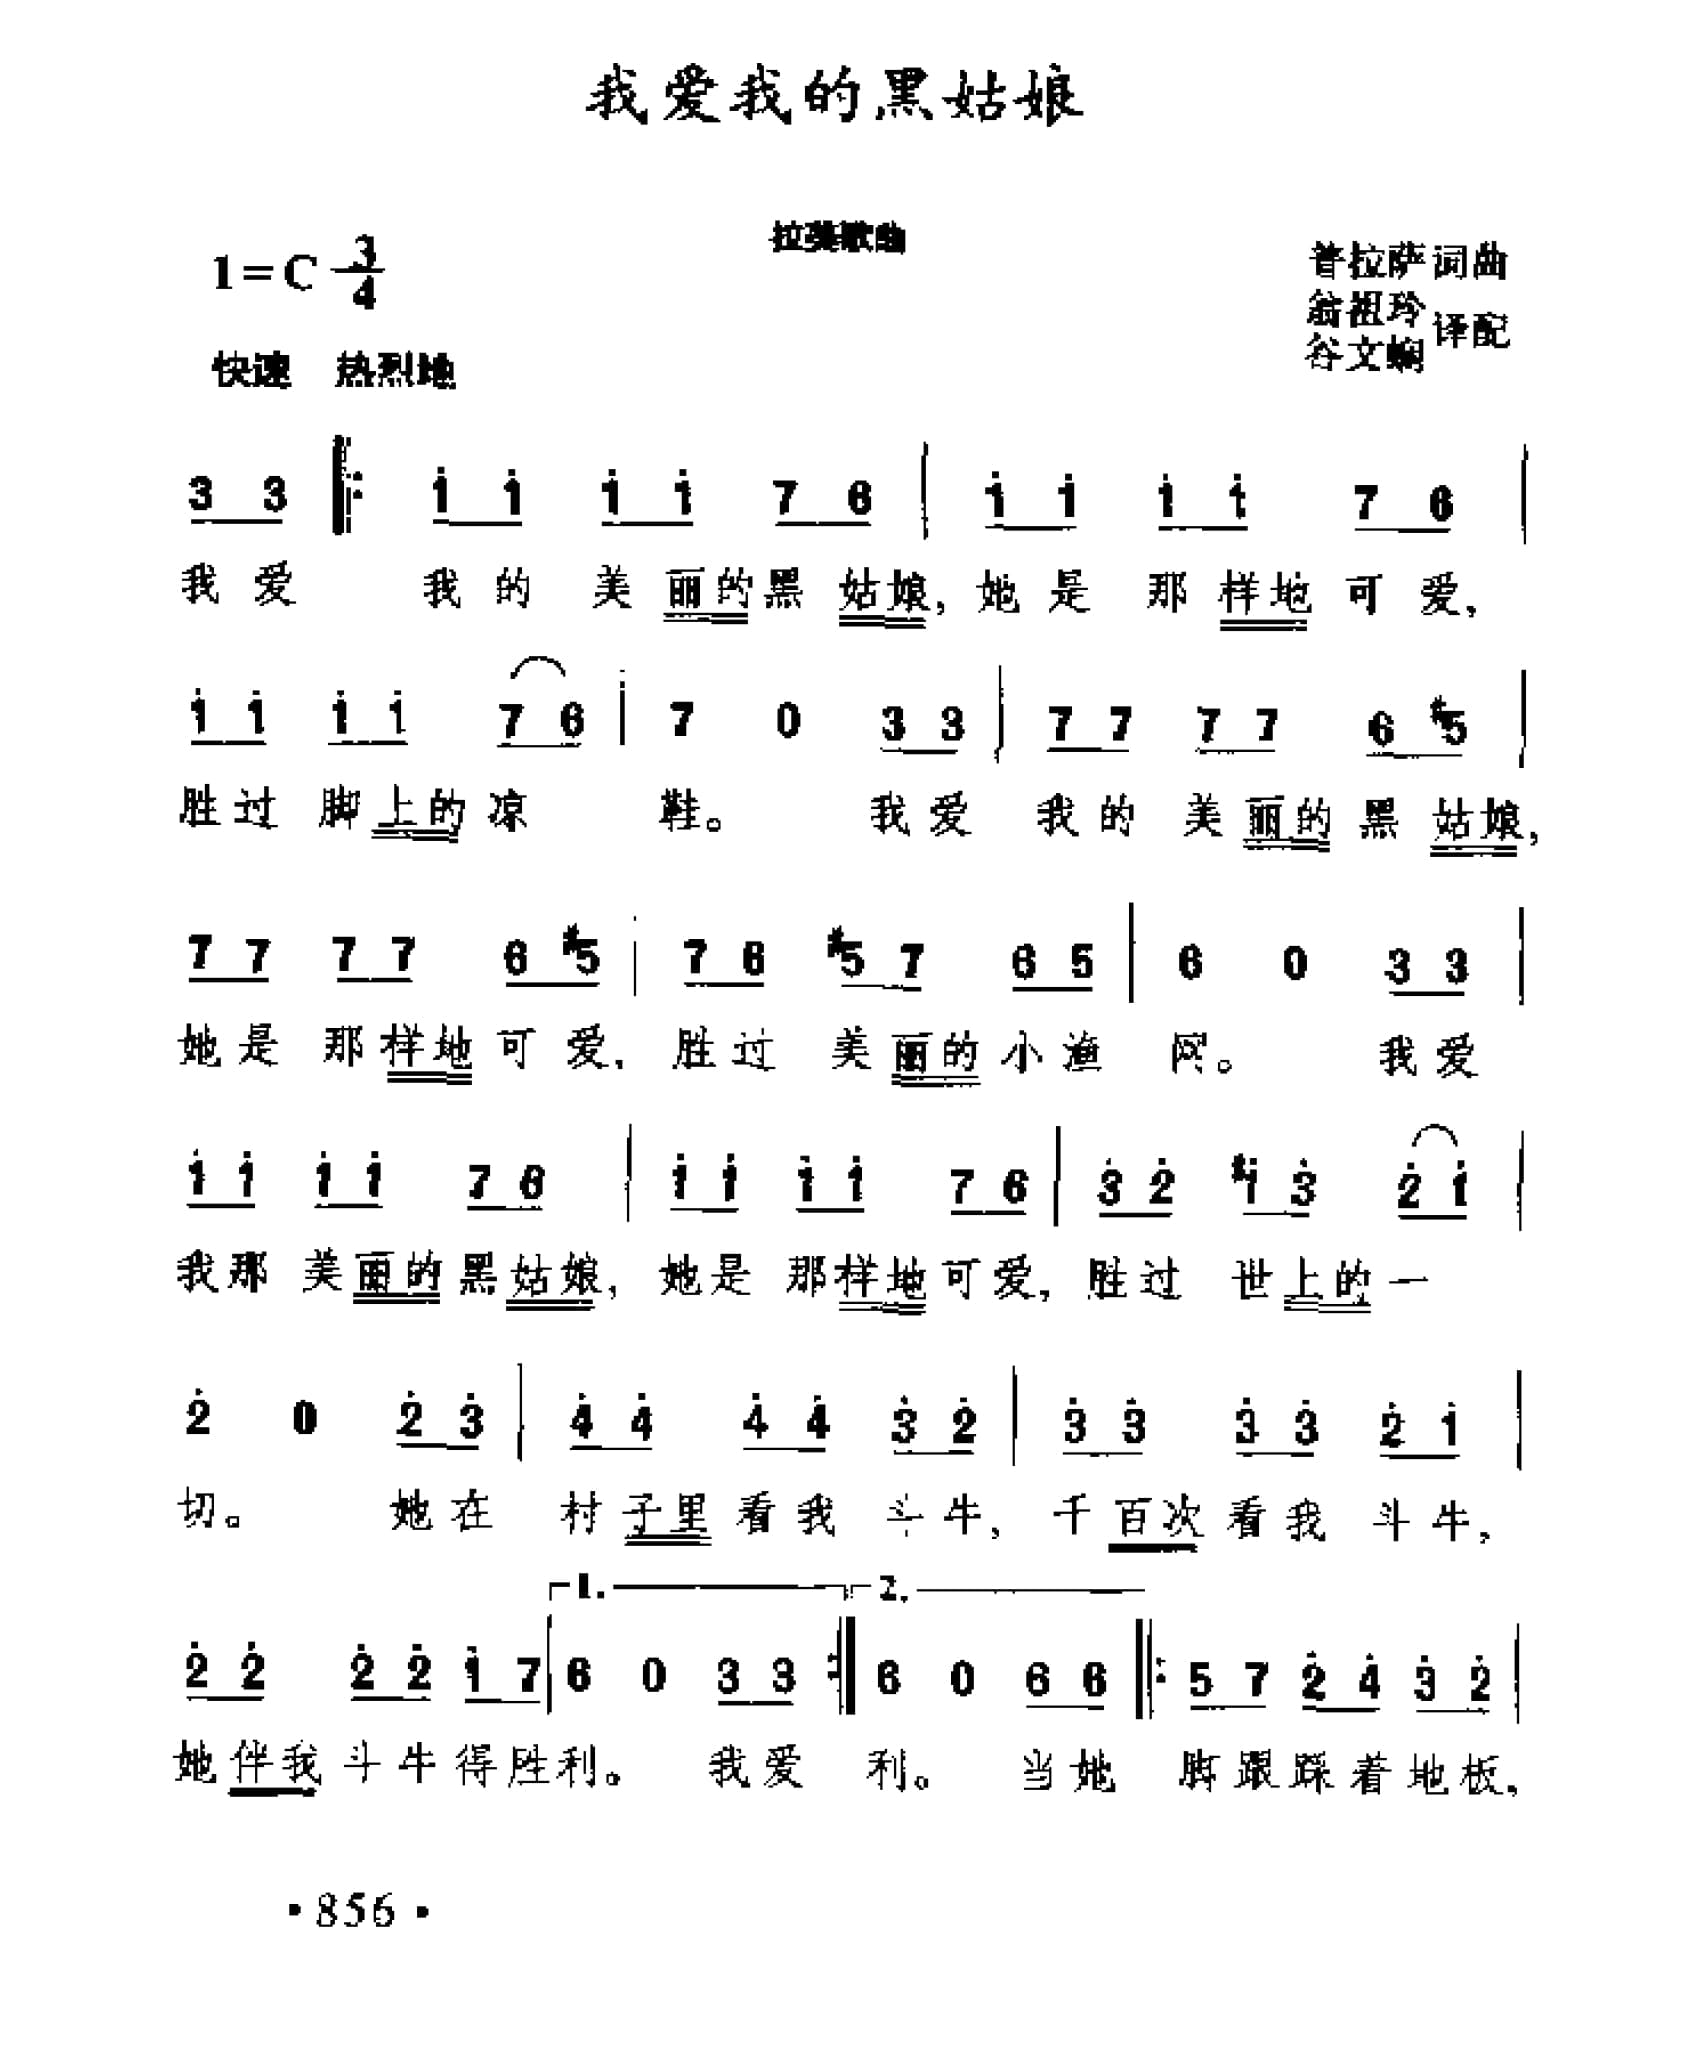 我爱我的黑姑娘
拉美歌曲
1=C 3/4
普拉萨 词曲
翁祖玲
谷文娴 译配
快速 热烈地
3 3 i i i i 7 6 i i i i 7 6
我爱 我的 美丽的黑姑娘,她是 那样地可爱,
i i i i 7 6 7 0 3 3 7 7 7 7 6 #5
胜过 脚上的凉 鞋。 我爱 我的 美丽的黑姑娘,
7 7 7 7 6 #5 7 6 #5 7 6 5 6 0 3 3
她是 那样地可爱, 胜过 美丽的小渔 网。 我爱
i i i i 7 6 i i i i 7 6 3̇ 2̇ #i 3̇ 2̇ i
我那 美丽的黑姑娘,她是 那样地可爱,胜过 世上的一
2̇ 0 2̇ 3̇ 4̇ 4̇ 4̇ 4̇ 3̇ 2̇ 3̇ 3̇ 3̇ 3̇ 2̇ i
切。 她在 村子里看我 斗牛, 千百次看我 斗牛,
1. 2.
2̇ 2̇ 2̇ 2̇ i 7 6 0 3 3 6 0 6 6 5 7 2̇ 4̇ 3̇ 2̇
她伴我 斗牛得胜利。 我爱 利。 当她 脚跟踩着地板,
·856·